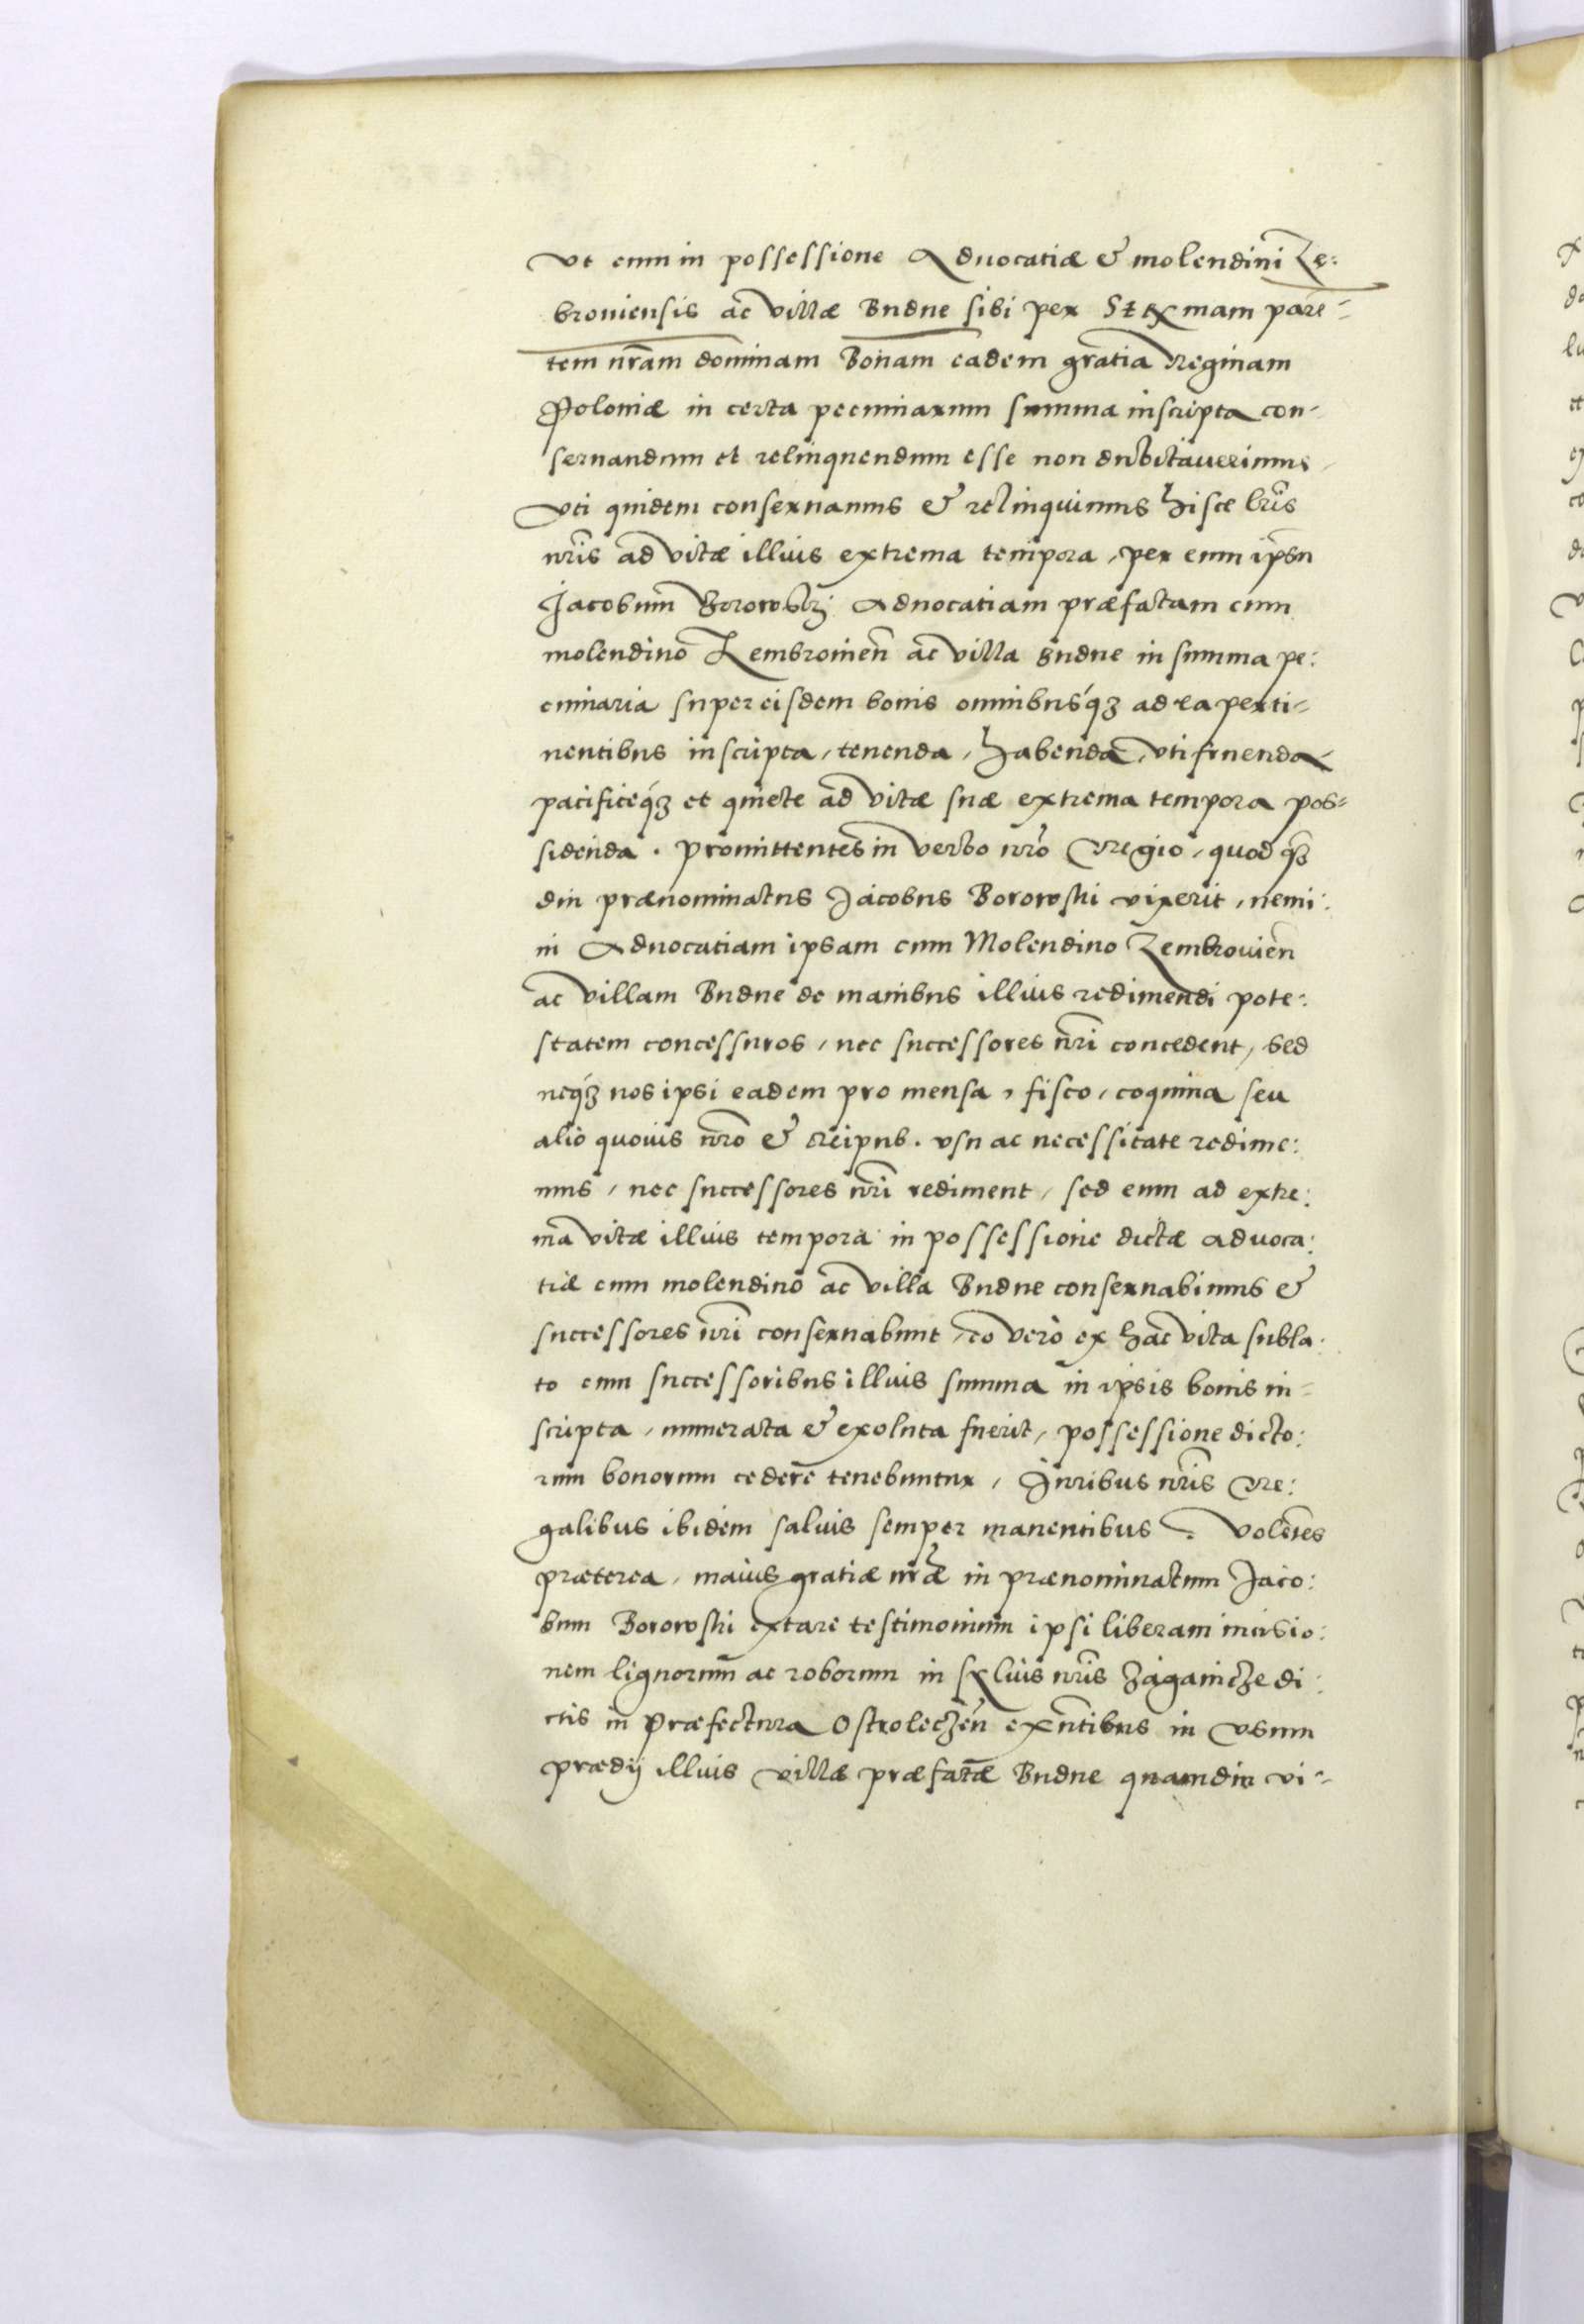 Vt eum in possessione Aduocatiæ & molendini Ze:
brouiensis ac villæ Budne sibi per Sermam pare=
tem nrãm dominam Bonam eadem gratia Reginam
Poloniæ in certa pecuniarum summa inscripta con-
seruandum et relinquendum esse non dubitauerimus,
Vti quidem conseruamus & relinquimus hisce lris
nris ad vitæ illius extrema tempora, per eum ipsu
Jacobum Borowskj Aduocatiam præfatam cum
molendino Zembrouien ac villa Budne in summa pe:
cuniaria super eisdem bonis omnibusq3 ad ea perti=
nentibus inscripta, tenenda, habenda, vti fruenda,
pacificeq3 et quiete ad vitæ suæ extrema tempora pos=
sidenda. promittentes in verbo nro Regio, quod q3
diu prænominatus Jacobus Borowski vixerit, nemi:
ni Aduocatiam ipsam cum Molendino Zembrouien
ac villam Budne de manibus illius redimendi pote:
statem concessuros, nec successores nri concedent, sed
neq3 nos ipsi eadem pro mensa, fisco, coquina seu
alio quouis nro & reipub. vsu ac necessitate redime:
mus, nec successores nri rediment, sed eum ad extre:
ma vitæ illius tempora in possessione dictæ aduoca:
tiæ cum molendino ac villa Budne conseruabimus &
successores nri conseruabunt, eo vero ex hac vita subla:
to cum successoribus illius summa in ipsis bonis in=
scripta, numerata & exoluta fuerit, possessione dicto:
rum bonorum cedere tenebuntur, Juribus nris Re:
galibus ibidem saluis semper manentibus. Volentes
præterea, maius gratiæ nræ in prænominatum Jaco:
bum Borowski extare testimonium ipsi liberam incisio:
nem lignorum ac roborum in syluis nris Zagaincze di:
ctis in Præfectura Ostroleczen exntibus in vsum
prædij illius villæ præfatæ Budne quamdiu vi=